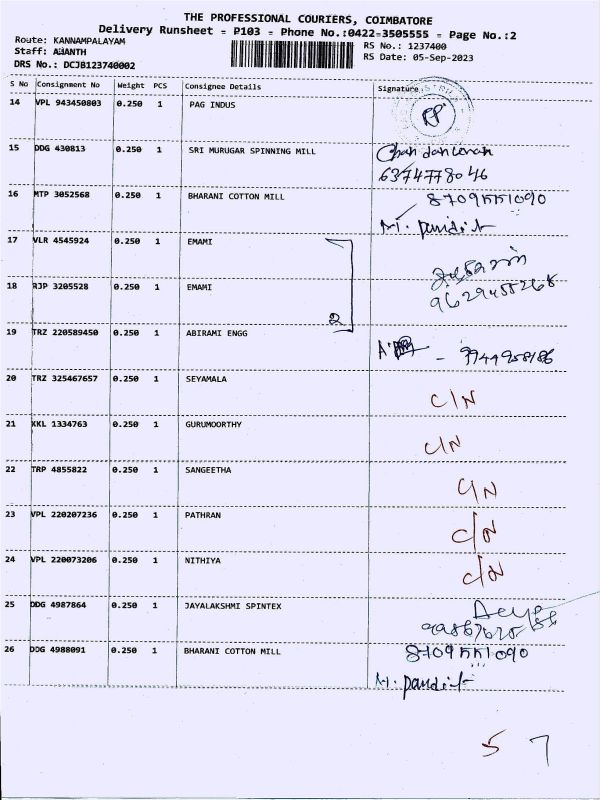 THE PROFESSIONAL COURIERS, COIMBATORE
Delivery Runsheet = P103 = Phone No.:0422=3505555 = Page No.:2
Route: KANNAMPALAYAM
RS No.: 1237400
Staff: AJANTH
RS Date: 05-Sep-2023
DRS No.: DCJB123740002
S No Consignment No Weight PCS Consignee Details Signature
14 VPL 943450803 0.250 1 PAG INDUS
15 DDG 430813 0.250 1 SRI MURUGAR SPINNING MILL
6374778046
16 MTP 3052568 0.250 1 BHARANI COTTON MILL 8709551090
M. pandit
17 VLR 4545924 0.250 1 EMAMI
18 RJP 3205528 0.250 1 EMAMI 9629455268
2
19 TRZ 220589450 0.250 1 ABIRAMI ENGG
20 TRZ 325467657 0.250 1 SEYAMALA C/N
21 KKL 1334763 0.250 1 GURUMOORTHY C/N
22 TRP 4855822 0.250 1 SANGEETHA C/N
23 VPL 220207236 0.250 1 PATHRAN C/N
24 VPL 220073206 0.250 1 NITHIYA C/N
25 DDG 4987864 0.250 1 JAYALAKSHMI SPINTEX
26 DDG 4988091 0.250 1 BHARANI COTTON MILL 8709551090
M. pandit
5 7